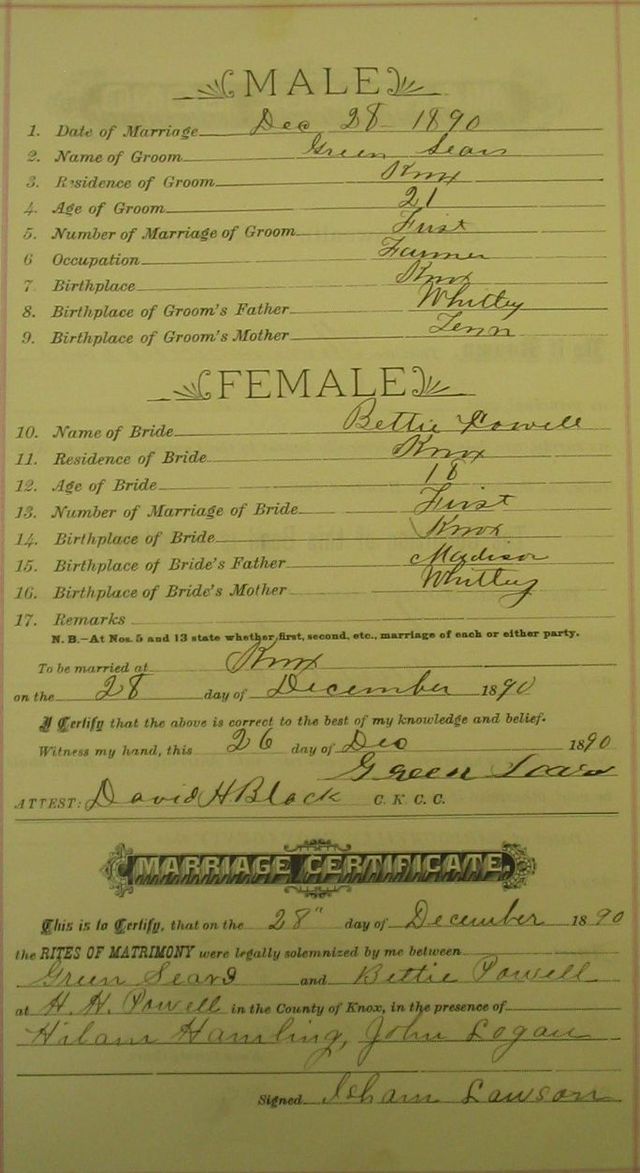 MALE
1. Date of Marriage Dec 28 1890
2. Name of Groom Green Sears
3. Residence of Groom Knox
4. Age of Groom 21
5. Number of Marriage of Groom First
6 Occupation Farmer
7 Birthplace Knox
8. Birthplace of Groom's Father Whitley
9. Birthplace of Groom's Mother Tenn
FEMALE
10. Name of Bride Bettie Powell
11. Residence of Bride Knox
12. Age of Bride 18
13. Number of Marriage of Bride First
14. Birthplace of Bride Knox
15. Birthplace of Bride's Father Madison
16. Birthplace of Bride's Mother Whitley
17. Remarks
N. B.—At Nos. 5 and 13 state whether first, second, etc., marriage of each or either party.
To be married at Knox
on the 28 day of December 1890
I Certify that the above is correct to the best of my knowledge and belief.
Witness my hand, this 26 day of Dec 1890
Green Sears
ATTEST: David H Black C. K. C. C.
MARRIAGE CERTIFICATE.
This is to Certify, that on the 28" day of December 1890
the RITES OF MATRIMONY were legally solemnized by me between
Green Sears and Bettie Powell
at H. H. Powell in the County of Knox, in the presence of
Hamling, John Logan
Signed Isham Lawson